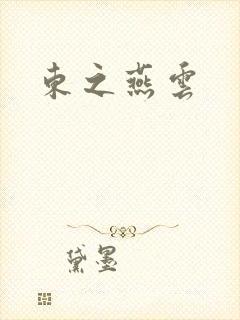 東之燕雲
黛墨